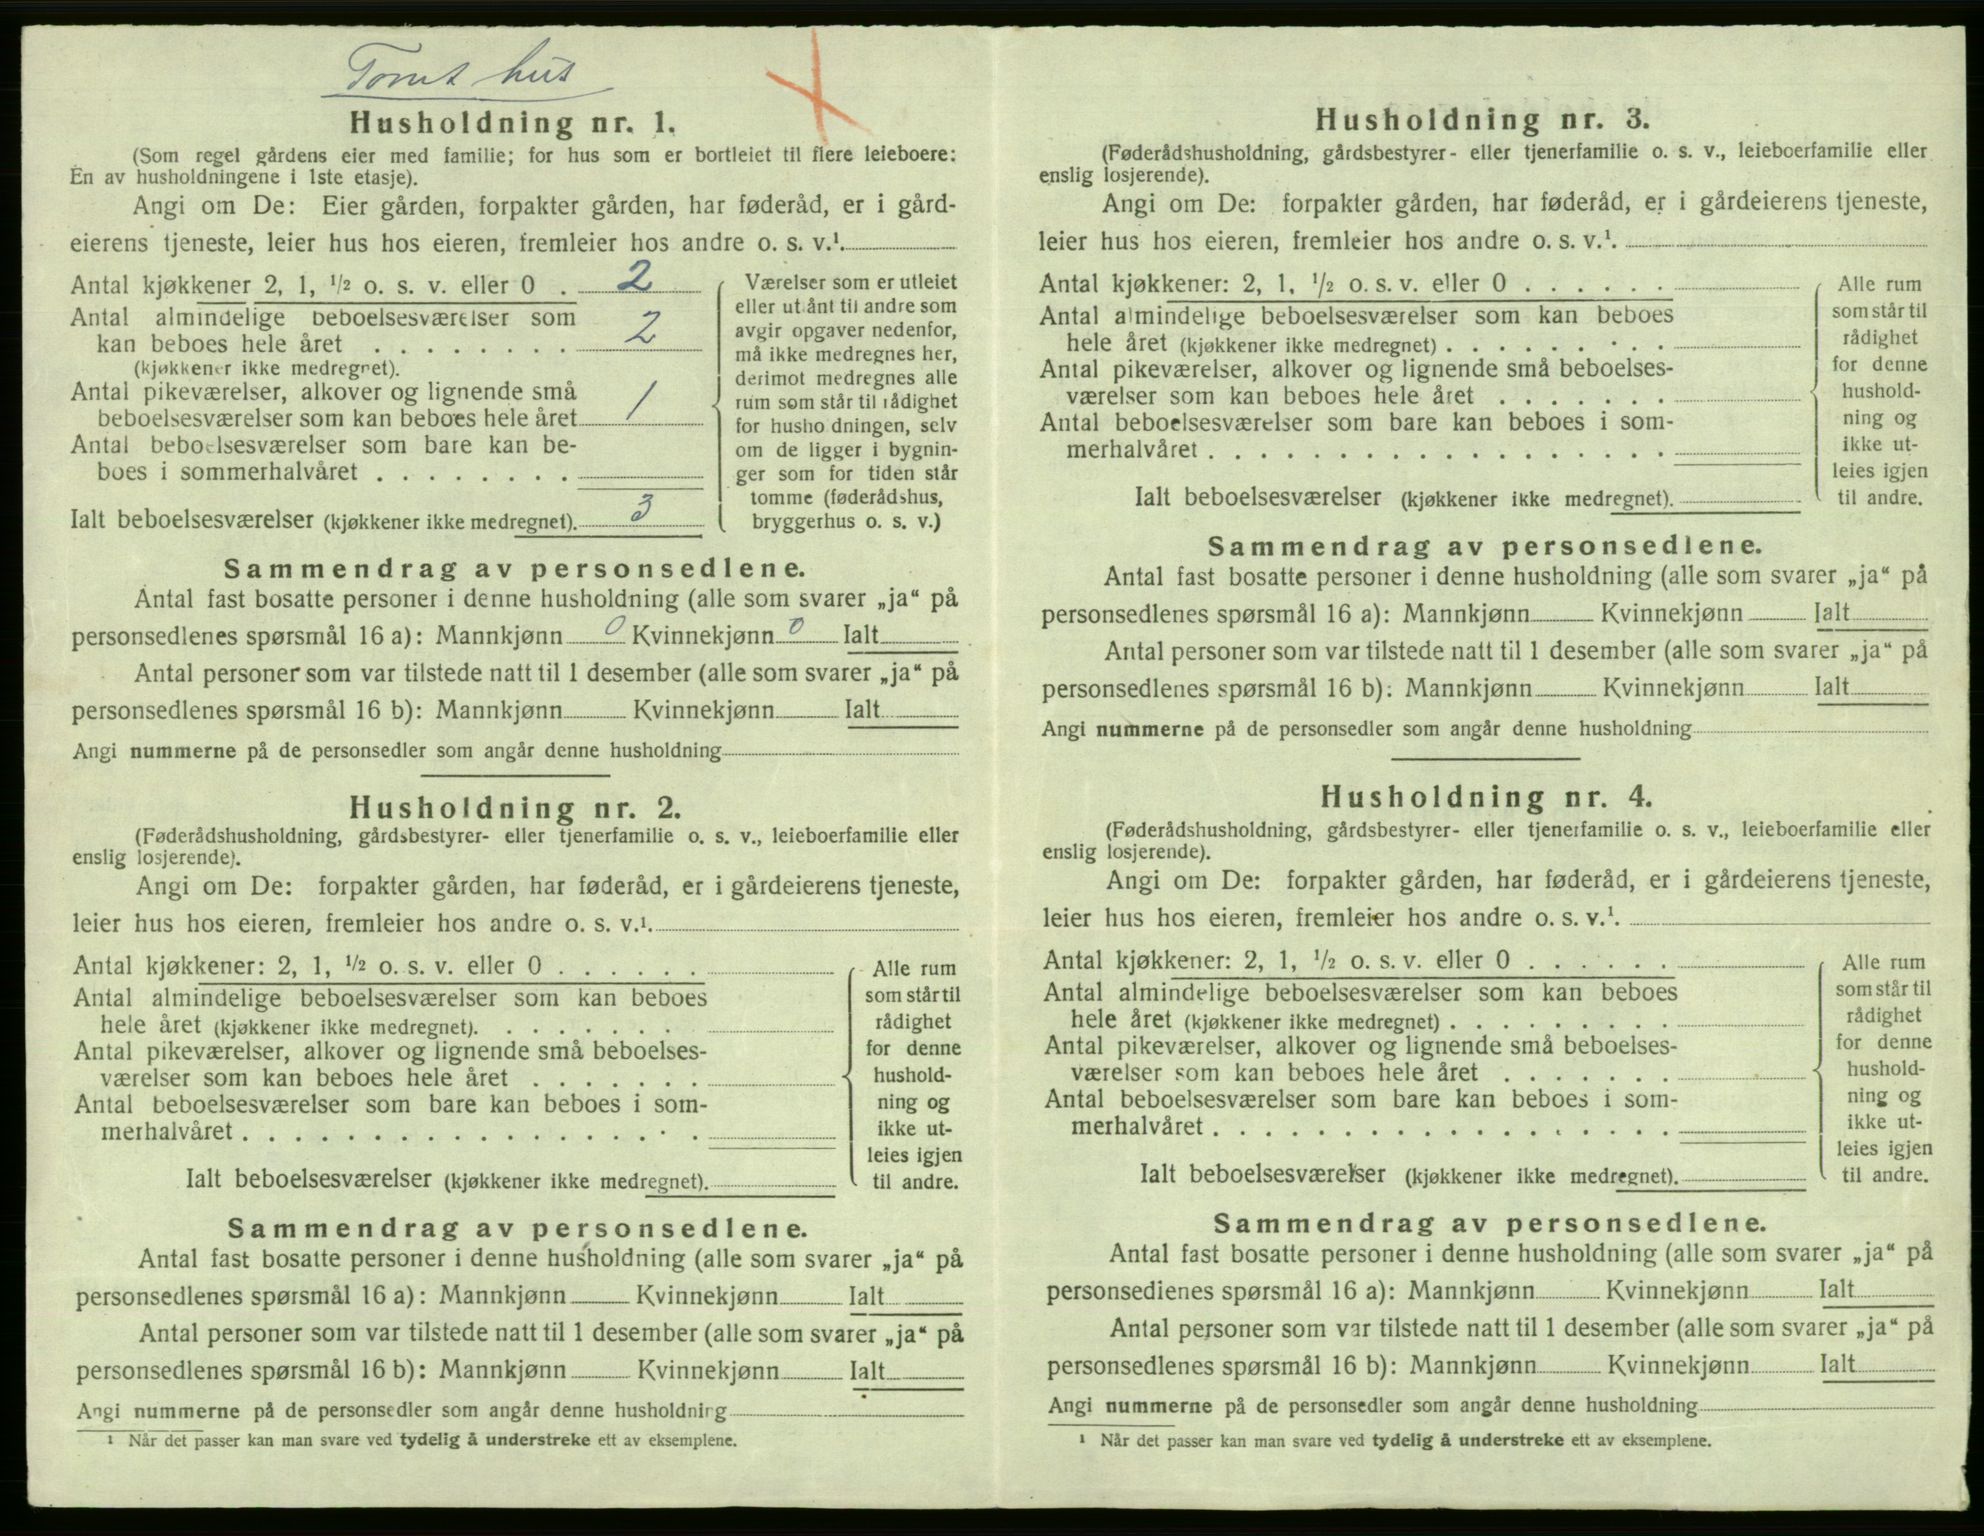 Tomt hus
Husholdning nr. 1.
(Som regel gårdens eier med familie; for hus som er bortleiet til flere leieboere:
En av husholdningene i 1ste etasje).
Angi om De: Eier gården, forpakter gården, har føderåd, er i gård-
eierens tjeneste, leier hus hos eieren, fremleier hos andre o. s. v.¹.
Antal kjøkkener 2, 1, ½ o. s. v. eller 0 . 2
Antal almindelige beboelsesværelser som
kan beboes hele året . . . . . . . . 2
(kjøkkener ikke medregnet).
Antal pikeværelser, alkover og lignende små
beboelsesværelser som kan beboes hele året 1
Antal beboelsesværelser som bare kan be-
boes i sommerhalvåret . . . . . . . .
Ialt beboelsesværelser (kjøkkener ikke medregnet). 3
Værelser som er utleiet
eller utlånt til andre som
avgir opgaver nedenfor,
må ikke medregnes her,
derimot medregnes alle
rum som står til rådighet
for husholdningen, selv
om de ligger i bygnin-
ger som for tiden står
tomme (føderådshus,
bryggerhus o. s. v.)
Sammendrag av personsedlene.
Antal fast bosatte personer i denne husholdning (alle som svarer „ja“ på
personsedlenes spørsmål 16 a): Mannkjønn 0 Kvinnekjønn 0 Ialt
Antal personer som var tilstede natt til 1 desember (alle som svarer „ja“ på
personsedlenes spørsmål 16 b): Mannkjønn Kvinnekjønn Ialt
Angi nummerne på de personsedler som angår denne husholdning
Husholdning nr. 2.
(Føderådshusholdning, gårdsbestyrer- eller tjenerfamilie o. s. v., leieboerfamilie eller
enslig losjerende).
Angi om De: forpakter gården, har føderåd, er i gårdeierens tjeneste,
leier hus hos eieren, fremleier hos andre o. s. v.¹.
Antal kjøkkener: 2, 1, ½ o. s. v. eller 0 . . . . . .
Antal almindelige beboelsesværelser som kan beboes
hele året (kjøkkener ikke medregnet). . . . . . . .
Antal pikeværelser, alkover og lignende små beboelses-
værelser som kan beboes hele året . . . . . . .
Antal beboelsesværelser som bare kan beboes i som-
merhalvåret . . . . . . . . . . . . . . . . . .
Ialt beboelsesværelser (kjøkkener ikke medregnet).
Alle rum
som står til
rådighet
for denne
hushold-
ning og
ikke ut-
leies igjen
til andre.
Sammendrag av personsedlene.
Antal fast bosatte personer i denne husholdning (alle som svarer „ja“ på
personsedlenes spørsmål 16 a): Mannkjønn Kvinnekjønn Ialt
Antal personer som var tilstede natt til 1 desember (alle som svarer „ja“ på
personsedlenes spørsmål 16 b): Mannkjønn Kvinnekjønn Ialt
Angi nummerne på de personsedler som angår denne husholdning
¹ Når det passer kan man svare ved tydelig å understreke ett av eksemplene.
Husholdning nr. 3.
(Føderådshusholdning, gårdsbestyrer- eller tjenerfamilie o. s. v., leieboerfamilie eller
enslig losjerende).
Angi om De: forpakter gården, har føderåd, er i gårdeierens tjeneste,
leier hus hos eieren, fremleier hos andre o. s. v.¹.
Antal kjøkkener: 2, 1, ½ o. s. v. eller 0 . . . . . .
Antal almindelige beboelsesværelser som kan beboes
hele året (kjøkkener ikke medregnet) . . . . . . . . .
Antal pikeværelser, alkover og lignende små beboelses-
værelser som kan beboes hele året . . . . . . .
Antal beboelsesværelser som bare kan beboes i som-
merhalvåret . . . . . . . . . . . . . . . . . .
Ialt beboelsesværelser (kjøkkener ikke medregnet).
Alle rum
som står til
rådighet
for denne
hushold-
ning og
ikke ut-
leies igjen
til andre.
Sammendrag av personsedlene.
Antal fast bosatte personer i denne husholdning (alle som svarer „ja“ på
personsedlenes spørsmål 16 a): Mannkjønn Kvinnekjønn Ialt
Antal personer som var tilstede natt til 1 desember (alle som svarer „ja“ på
personsedlenes spørsmål 16 b): Mannkjønn Kvinnekjønn Ialt
Angi nummerne på de personsedler som angår denne husholdning
Husholdning nr. 4.
(Føderådshusholdning, gårdsbestyrer- eller tjenerfamilie o. s. v., leieboerfamilie eller
enslig losjerende).
Angi om De: forpakter gården, har føderåd, er i gårdeierens tjeneste,
leier hus hos eieren, fremleier hos andre o. s. v.¹.
Antal kjøkkener: 2, 1, ½ o. s. v. eller 0 . . . . . .
Antal almindelige beboelsesværelser som kan beboes
hele året (kjøkkener ikke medregnet) . . . . . . . . .
Antal pikeværelser, alkover og lignende små beboelses-
værelser som kan beboes hele året . . . . . . .
Antal beboelsesværelser som bare kan beboes i som-
merhalvåret . . . . . . . . . . . . . . . . . .
Ialt beboelsesværelser (kjøkkener ikke medregnet).
Alle rum
som står til
rådighet
for denne
hushold-
ning og
ikke ut-
leies igjen
til andre.
Sammendrag av personsedlene.
Antal fast bosatte personer i denne husholdning (alle som svarer „ja“ på
personsedlenes spørsmål 16 a): Mannkjønn Kvinnekjønn Ialt
Antal personer som var tilstede natt til 1 desember (alle som svarer „ja“ på
personsedlenes spørsmål 16 b): Mannkjønn Kvinnekjønn Ialt
Angi nummerne på de personsedler som angår denne husholdning
¹ Når det passer kan man svare ved tydelig å understreke ett av eksemplene.